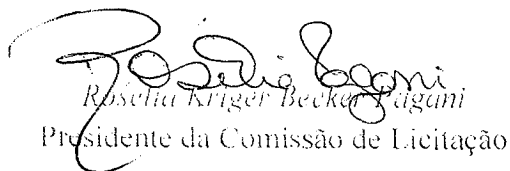 Rosélia Pagani
Rosélia Kriger Becker Pagani
Presidente da Comissão de Licitação